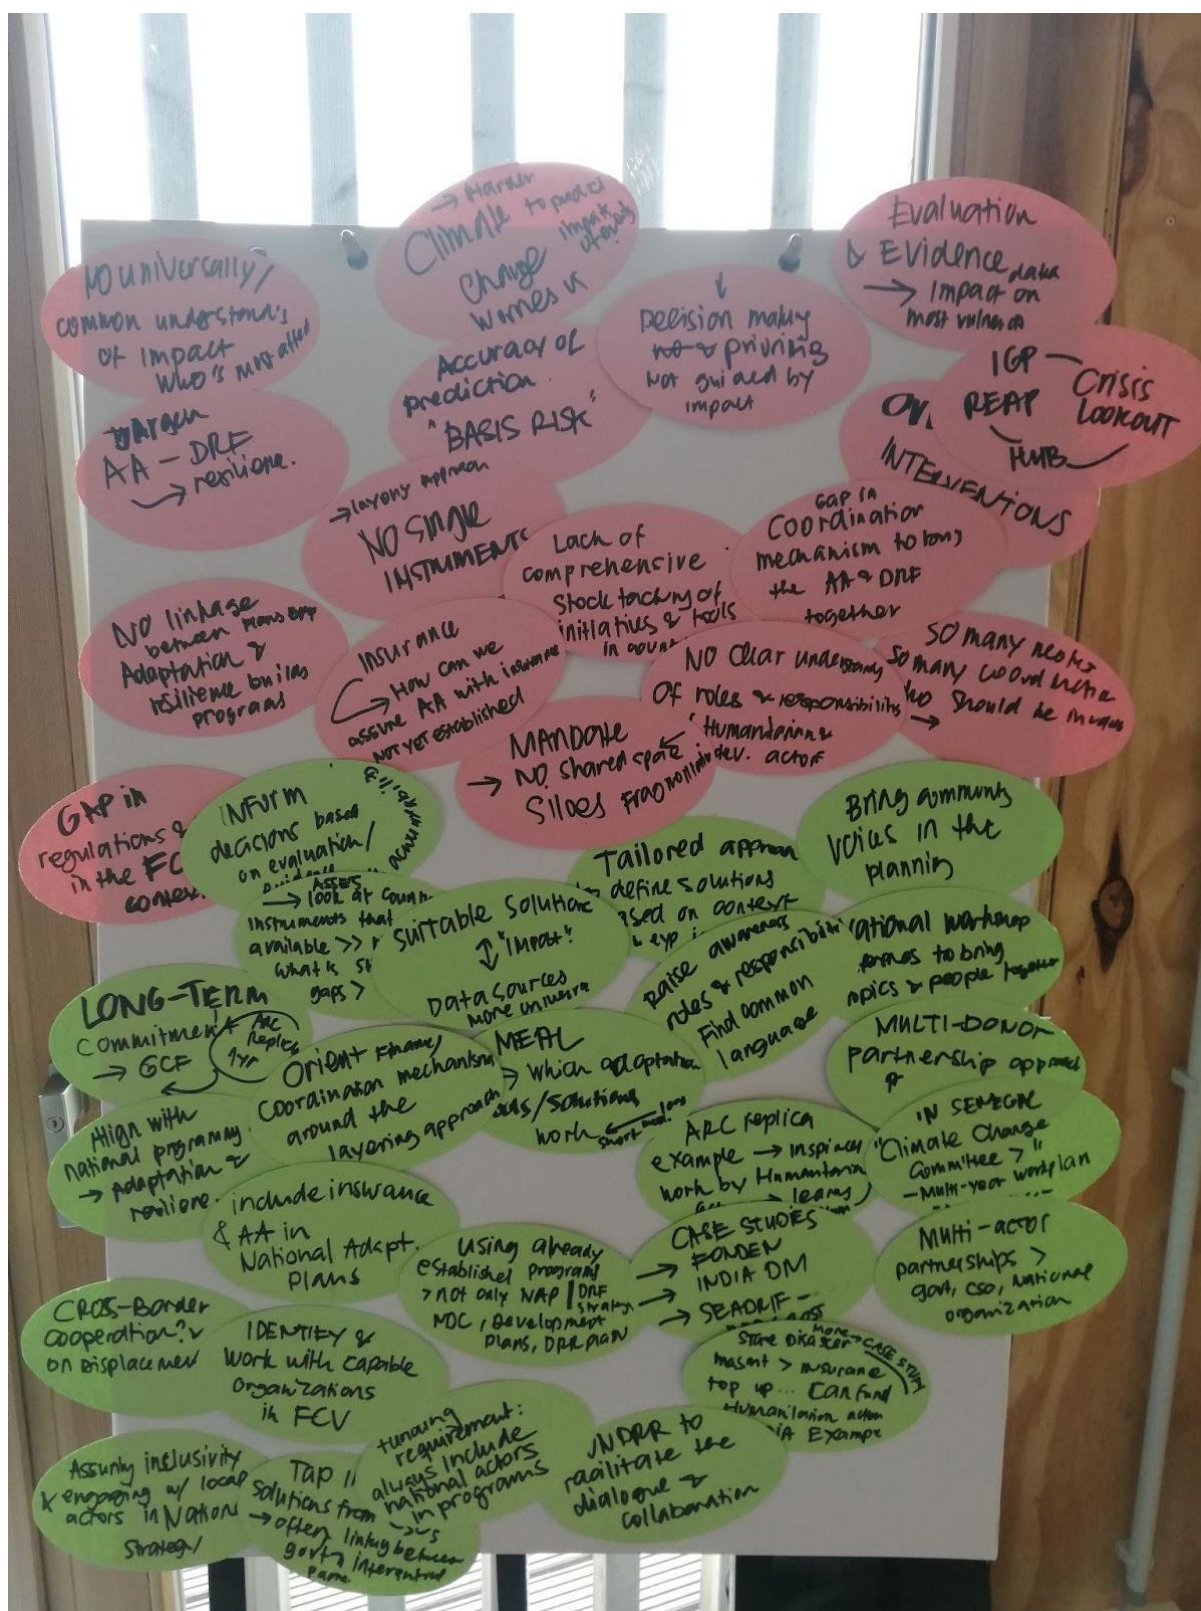 NO universally/
common understand's
of impact
who's most affed
→ Harder
Climate to predict
Change impact
worries us
Decision making
prioriring
not guided by
impact
Evaluation
& EVIDENCE data
→ Impact on
most vulner
Accuracy of
prediction.
"BASIS RISK"
IGP
REAP
Crisis
LOOKOUT
HUB
INTERVENTIONS
AA - DRF
→ resilience.
→ layering approach
NO SINGLE
INSTRUMENTS
Lack of
comprehensive
stock tacking of
initiatives & tools
in coun
GAP in
Coordination
mechanism to bring
the AA & DRF
together
NO linkage
between
Adaptation &
resilience builds
programs
insurance
→ How can we
assure AA with insurance
not yet established
NO clear understanding
of roles & responsibility
Humanitarian &
dev. actors
SO many
So many
should be
→
MANDATE
→ NO shared space
Siloes
GAP in
regulations &
in the FC
context
INFORM
decisions based
on evaluation/
Tailored approa
define solutions
based on context
Bring community
voices in the
planning
ASSETS
→ look at coun
instruments that
available >>
what is
gaps >
suitable solution
↕ "Impact"
Data sources
more
Raise awareness
roles & responsibiliti
Find common
language
ational workshop
to bring
opics & people together
LONG-TERM
commitment
→ GCF
ARC
Replica
1yr
Orient Finance/
Coordination mechanism
around the
layering approach
MEAL
→ which adaptation
/solutions
work
short
long
MULTI-DONOR
partnership approach
Align with
national programmg.
→ Adaptation &
resilience.
ARC replica
example → inspires
work by Humanitarian
→ learns
IN SENEGAL
"Climate Change
Committee > "
- Multi-year workplan
include insurance
& AA in
National Adapt.
plans
Using already
established programs
> not only NAP / DRF
strategy
NDC, Development
plans, DRR plan
CASE STUDIES
→ FONDEN
→ INDIA DM
→ SEADRIF -
Multi-actor
partnerships >
govt, CSO, National
organization
CROSS-Border
cooperation?
on displacemen
IDENTIFY &
work with capable
organizations
in FCV
State Disaster
More → CASE STUDY
> insurance
top up... can fund
Humanitarian action
Example
Assuring inclusivity
& engaging w/ local
actors in Nation
strategy
Tap i
solutions from
→ often linking between
govt &
funding
requirement:
always include
national actors
in programs
UNDRR to
facilitate the
dialogue &
collaboration